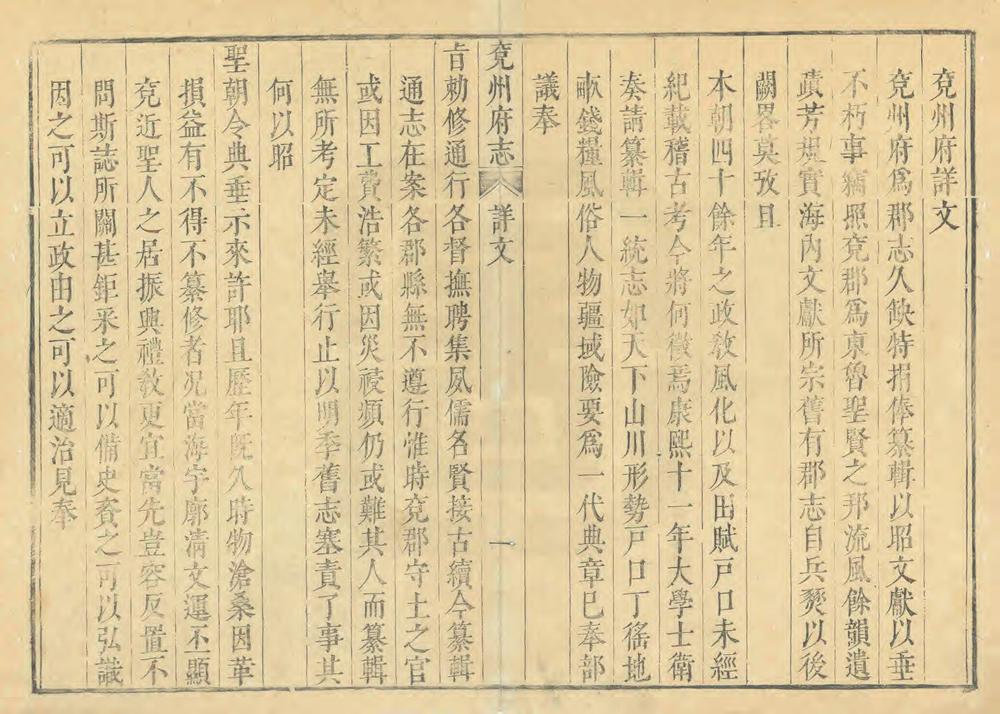 兗州府詳文
兗州府爲郡志久缺特捐俸纂輯以昭文獻以垂
不朽事竊照兗郡爲東魯聖賢之邦流風餘韻遺
蹟芳規實海內文獻所宗舊有郡志自兵燹以後
闕畧莫攷且
本朝四十餘年之政敎風化以及田賦戸口未經
紀載稽古考今將何徵焉康熙十一年大學士衛
奏請纂輯一統志如天下山川形勢戸口丁徭地
畝錢糧風俗人物疆域險要爲一代典章已奉部
議奉
兗州府志 詳文 一
旨勅修通行各督撫聘集夙儒名賢接古續今纂輯
通志在案各郡縣無不遵行惟時兗郡守土之官
或因工費浩繁或因災祲頻仍或難其人而纂輯
無所考定未經舉行止以明季舊志塞責了事其
何以昭
聖朝令典垂示來許耶且歷年旣久時物滄桑因革
損益有不得不纂修者况當海宇廓清文運丕顯
兗近聖人之居振興禮敎更宜當先豈容反置不
問斯誌所關甚鉅釆之可以備史賚之可以弘識
因之可以立政由之可以適治見奉